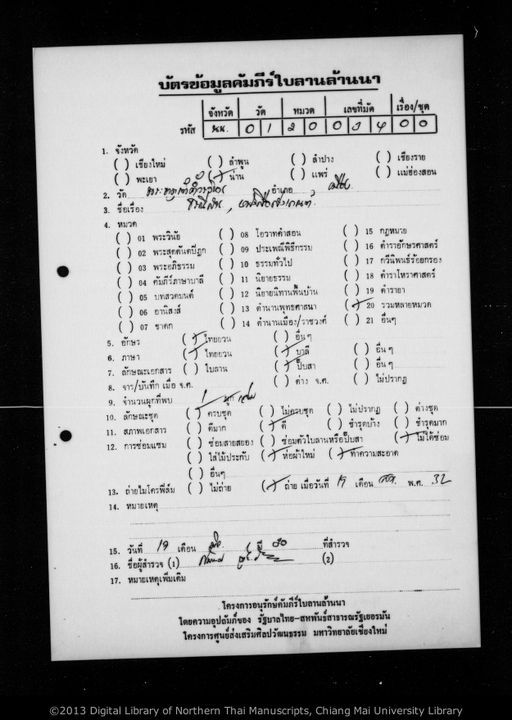 บัตรข้อมูลคัมภีร์ใบลานล้านนา
จังหวัด วัด หมวด เลขที่มัด เรื่อง/ชุด
รหัส นน. 0 1 2 0 0 3 4 0 0
1. จังหวัด
( ) เชียงใหม่ ( ) ลำพูน ( ) ลำปาง ( ) เชียงราย
( ) พะเยา (/) น่าน ( ) แพร่ ( ) แม่ฮ่องสอน
2. วัด อำเภอ เมือง
3. ชื่อเรื่อง
4. หมวด
( ) 01 พระวินัย ( ) 08 โอวาทคำสอน ( ) 15 กฎหมาย
( ) 02 พระสุตตันตปิฎก ( ) 09 ประเพณีพิธีกรรม ( ) 16 ตำราอักษรศาสตร์
( ) 03 พระอภิธรรม ( ) 10 ธรรมทั่วไป ( ) 17 กวีนิพนธ์ร้อยกรอง
( ) 04 คัมภีร์ภาษาบาลี ( ) 11 นิยายธรรม ( ) 18 ตำราโหราศาสตร์
( ) 05 บทสวดมนต์ ( ) 12 นิยายนิทานพื้นบ้าน ( ) 19 ตำรายา
( ) 06 อานิสงส์ ( ) 13 ตำนานพุทธศาสนา (/) 20 รวมหลายหมวด
( ) 07 ชาดก ( ) 14 ตำนานเมือง/ราชวงศ์ ( ) 21 อื่นๆ
5. อักษร (/) ไทยยวน ( ) อื่นๆ
6. ภาษา (/) ไทยยวน (/) บาลี ( ) อื่นๆ
7. ลักษณะเอกสาร ( ) ใบลาน (/) ปั๊บสา ( ) อื่นๆ
8. จาร/บันทึก เมื่อ จ.ศ. ( ) ต่าง จ.ศ. ( ) ไม่ปรากฏ
9. จำนวนผูกที่พบ 1
10. ลักษณะชุด (/) ครบชุด ( ) ไม่ครบชุด ( ) ไม่ปรากฏ ( ) ต่างชุด
11. สภาพเอกสาร ( ) ดีมาก (/) ดี ( ) ชำรุดบ้าง ( ) ชำรุดมาก
12. การซ่อมแซม ( ) ซ่อมสายสยอง ( ) ซ่อมตัวใบลานหรือปั๊บสา (/) ไม่ได้ซ่อม
( ) ใส่ไม้ประกับ (/) ห่อผ้าใหม่ (/) ทำความสะอาด
( ) อื่นๆ
13. ถ่ายไมโครฟิล์ม ( ) ไม่ถ่าย (/) ถ่าย เมื่อวันที่ 19 เดือน พ.ศ. 32
14. หมายเหตุ
15. วันที่ 19 เดือน ปี 30 ที่สำรวจ
16. ชื่อผู้สำรวจ (1) (2)
17. หมายเหตุเพิ่มเติม
โครงการอนุรักษ์คัมภีร์ใบลานล้านนา
โดยความอุปถัมภ์ของ รัฐบาลไทย-สหพันธ์สาธารณรัฐเยอรมัน
โครงการศูนย์ส่งเสริมศิลปวัฒนธรรม มหาวิทยาลัยเชียงใหม่
©2013 Digital Library of Northern Thai Manuscripts, Chiang Mai University Library